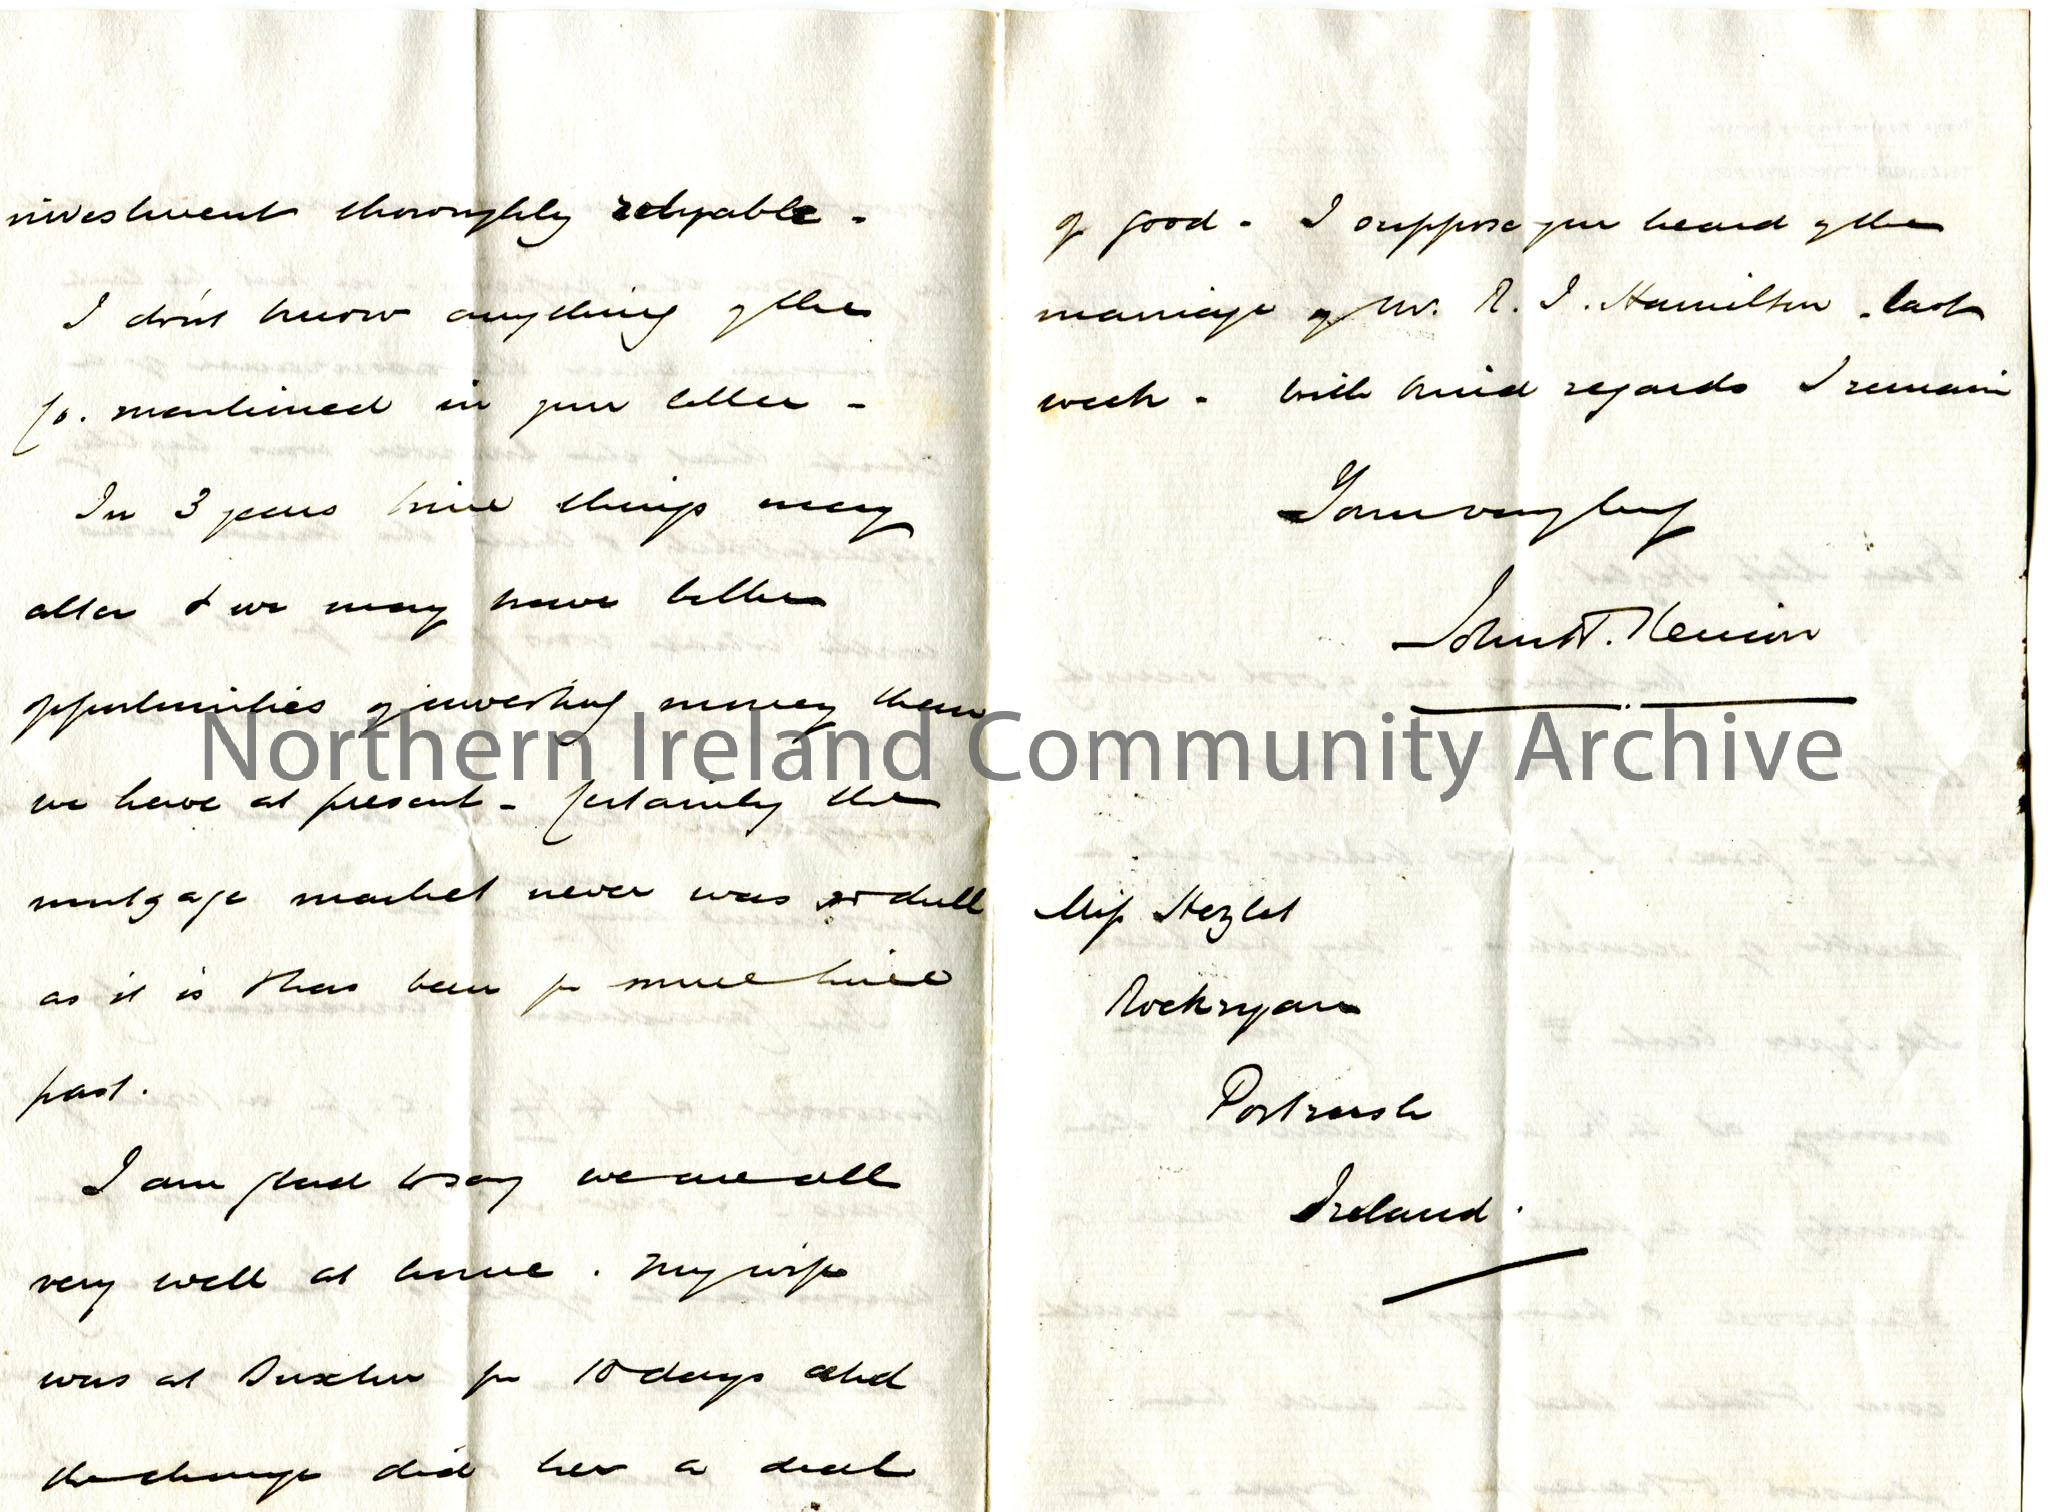 investment thoroughly relyable -
I don't know anything of the
Co. mentioned in your letter -
In 3 years time things may
alter & we may have better
opportunities of investing money than
we have at present - Certainly the
mortgage market never was so dull
as it is & has been for some time
past.
I am glad to say we are all
very well at home. My wife
was at Buxton for 10 days and
the change did her a deal
of good - I suppose you heard of the
marriage of Mr. R. J. Hamilton last
week - With kind regards I remain
Yours very truly
John
Miss Hezlet
Rockryan
Portrush
Ireland.
Northern Ireland Community Archive